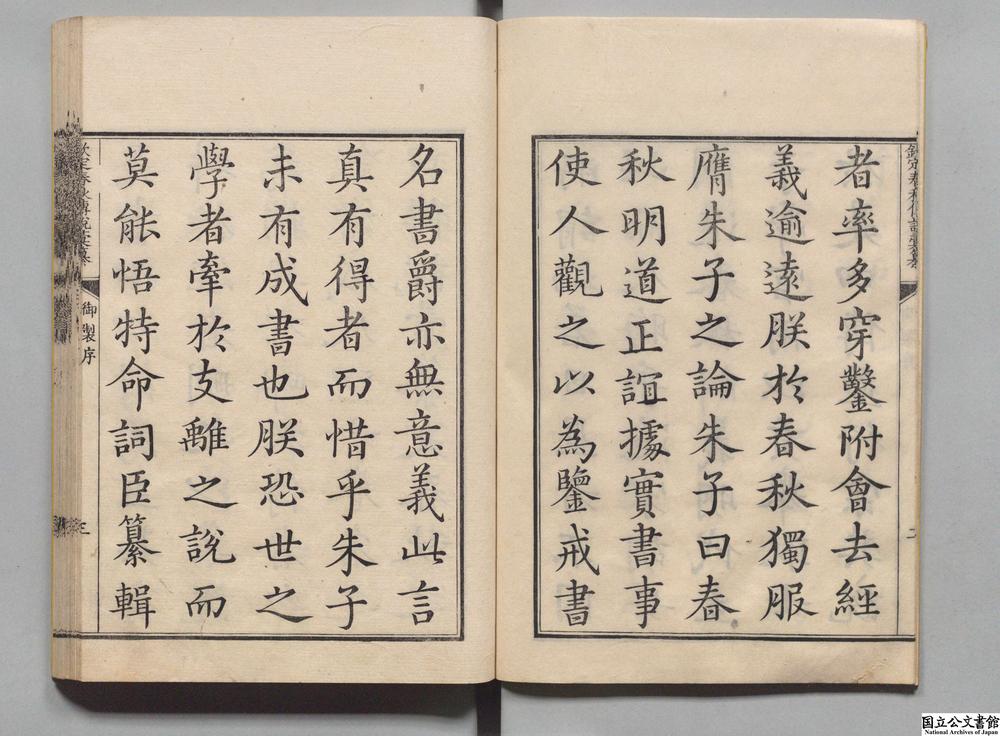 者率多穿鑿附會去經
義逾逺朕於春秋獨服
膺朱子之論朱子曰春
秋明道正誼據實書事
使人觀之以為鑒戒書
名書爵亦無意義此言
真有得者而惜乎朱子
未有成書也朕恐世之
學者牽於支離之說而
莫能悟特命詞臣纂輯
御製序
三
国立公文書館
National Archives of Japan